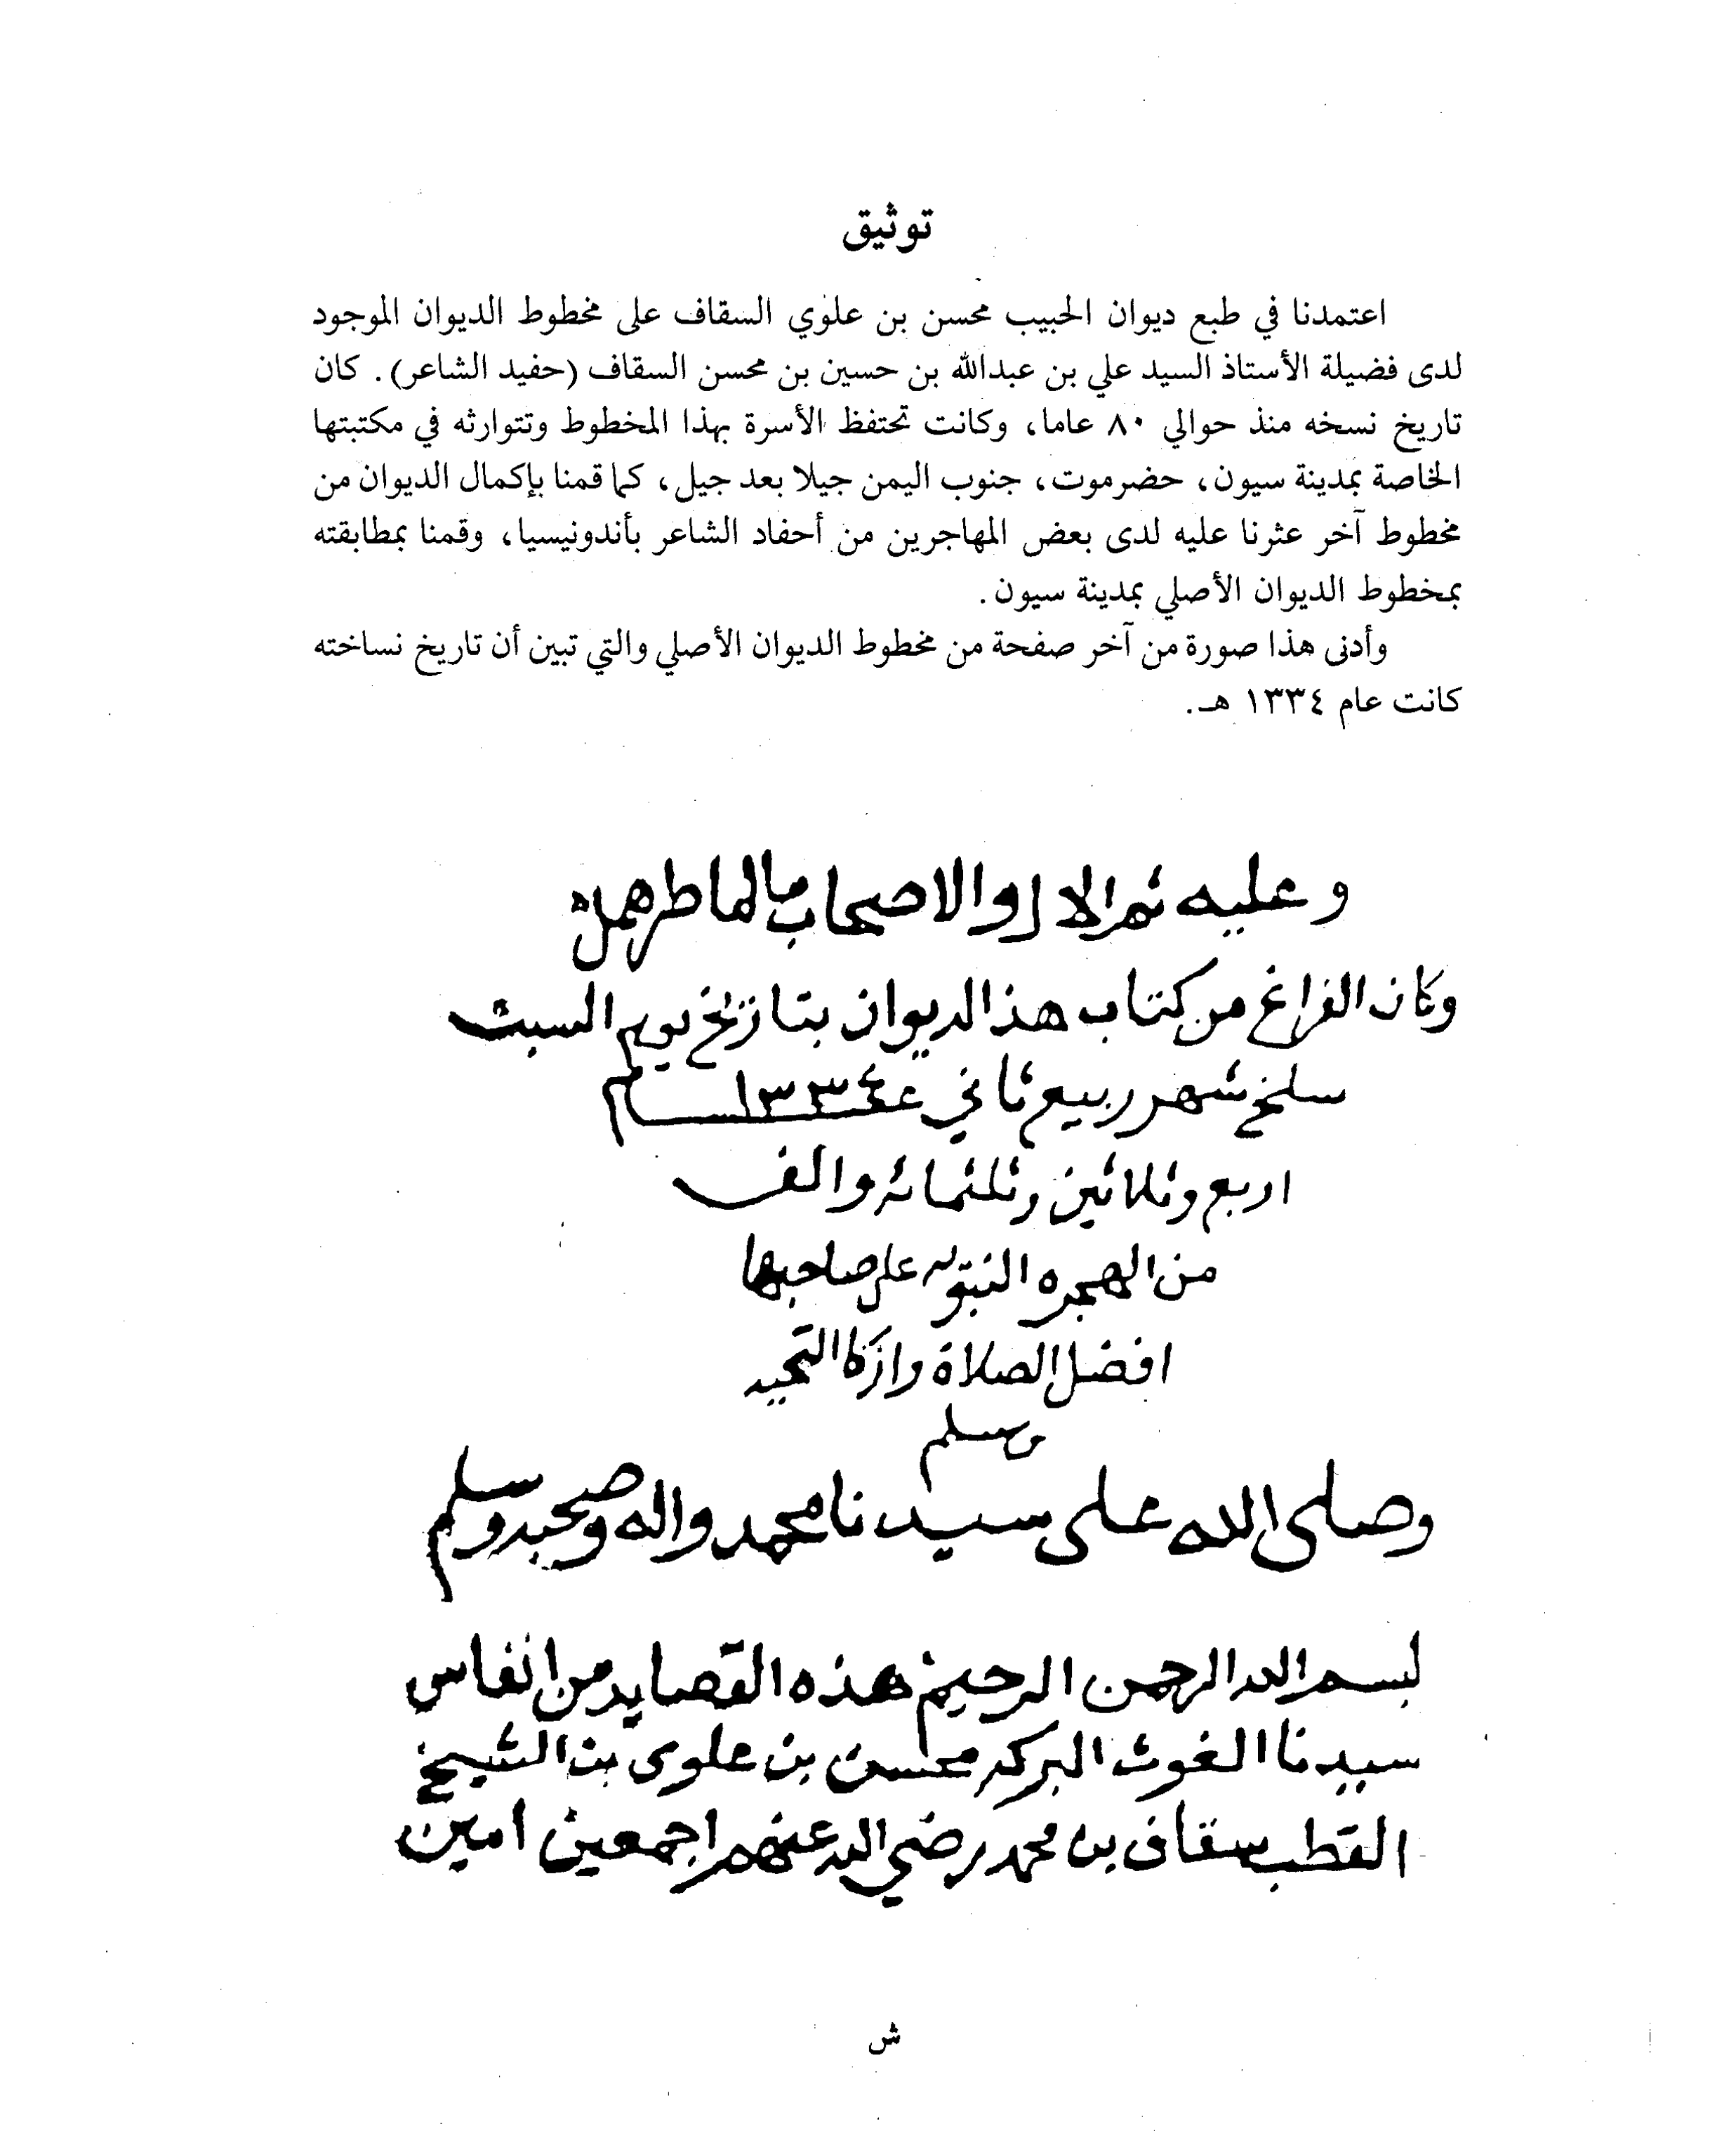 توثيق
اعتمدنا في طبع ديوان الحبيب محسن بن علوي السقاف على مخطوط الديوان الموجود
لدى فضيلة الأستاذ السيد علي بن عبدالله بن حسين بن محسن السقاف (حفيد الشاعر). كان
تاريخ نسخه منذ حوالي ٨٠ عاما، وكانت تحتفظ الأسرة بهذا المخطوط وتتوارثه في مكتبتها
الخاصة بمدينة سيون، حضرموت، جنوب اليمن جيلا بعد جيل، كما قمنا بإكمال الديوان من
مخطوط آخر عثرنا عليه لدى بعض المهاجرين من أحفاد الشاعر بأندونيسيا، وقمنا بمطابقته
بمخطوط الديوان الأصلي بمدينة سيون.
وأدنى هذا صورة من آخر صفحة من مخطوط الديوان الأصلي والتي تبين أن تاريخ نساخته
كانت عام ١٣٣٤ هـ.
وعليه ثم الال والاصحاب ما لماطر همل
وكان الفراغ من كتاب هذالديوان بتاريخ يوم السبت
سلخ شهر ربيع ثاني عام ١٣٣٤
اربع وثلاثين وثلثمائه والف
من الهجره النبويه على صاحبها
افضل الصلاة وازكا التحيه
وسلم
وصلى الله على سيدنا محمد واله وصحبه وسلم
بسم الله الرحمن الرحيم هذه القصايد من انفاس
سيدنا الغوث البركه محسن بن علوي بن الشيخ
القطب سقاف بن محمد رضي الله عنهم اجمعين امين
ش